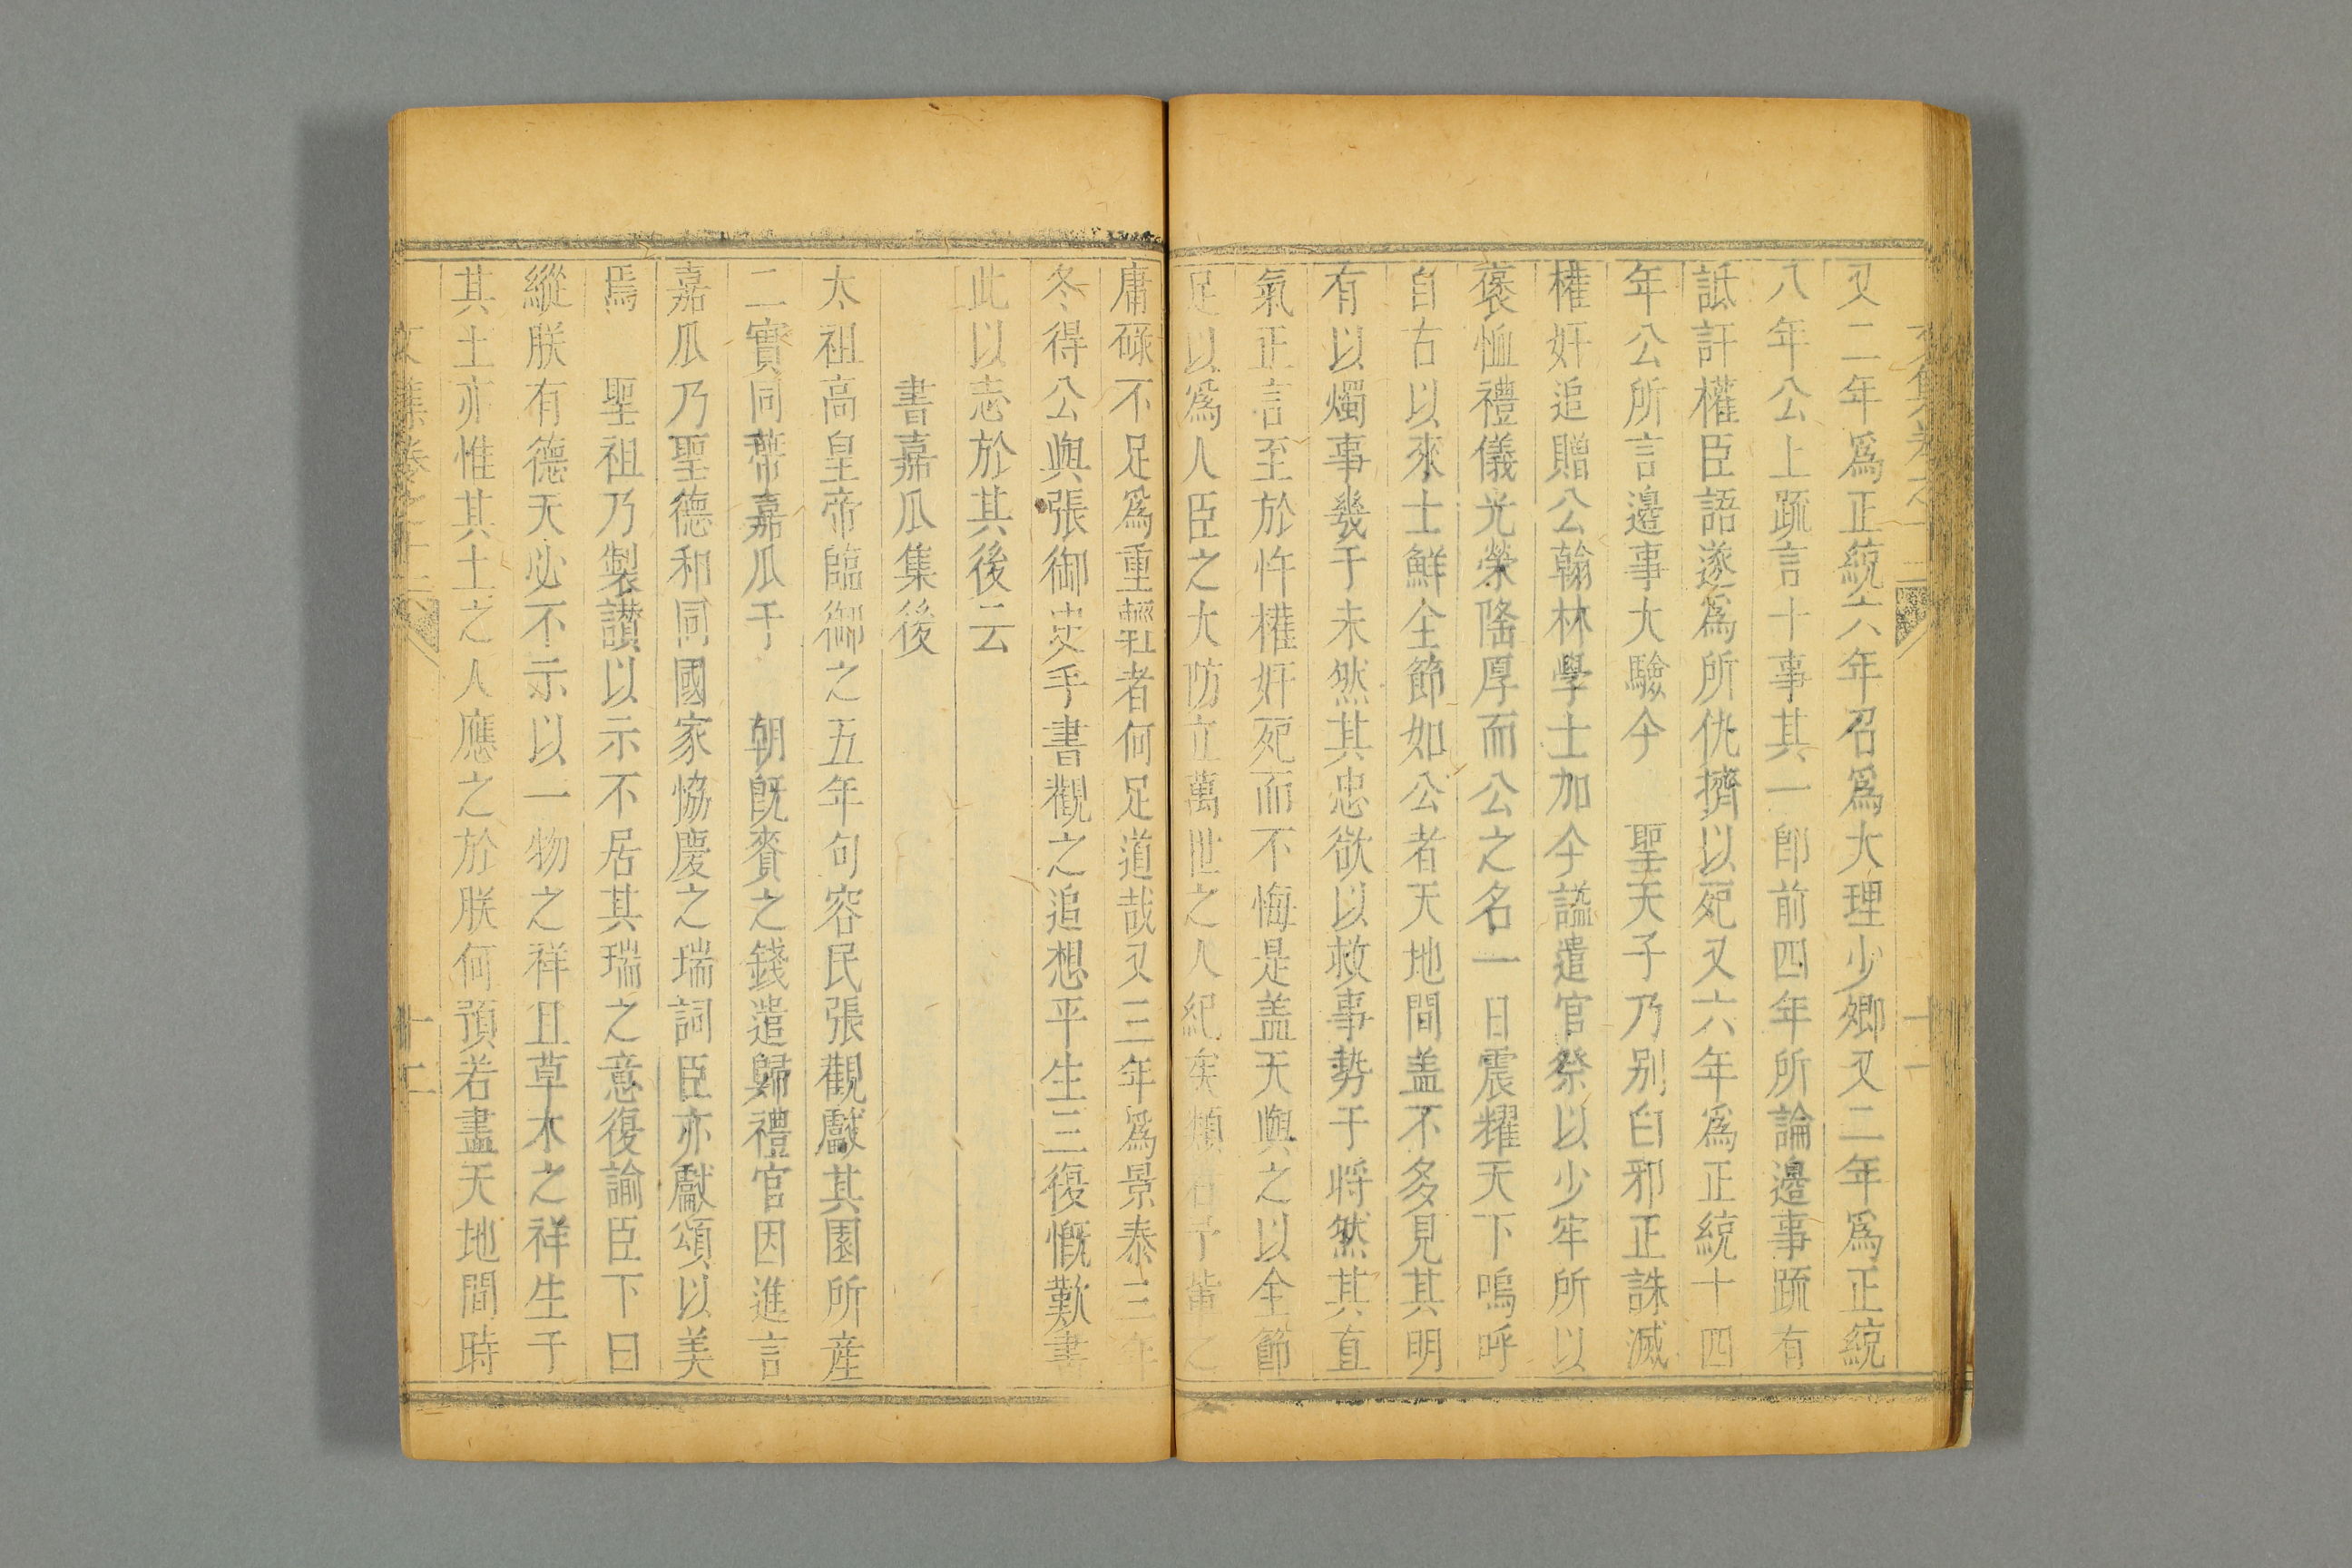 又二年爲正統六年召爲大理少卿又二年爲正統
八年公上䟽言十事其一卽前四年所論邊事䟽有
詆訐權臣語遂爲所仇擠以死又六年爲正統十四
年公所言邊事大驗今 聖天子乃別白邪正誅滅
權奸追贈公翰林學士加今諡遣官祭以少牢所以
褒恤禮儀光榮隆厚而公之名一日震耀天下嗚呼
自古以來士鮮全節如公者天地間盖不多見其明
有以燭事幾于未然其忠欲以救事勢于將然其直
氣正言至於忤權奸死而不悔是盖天與之以全節
足以爲人臣之大防立萬世之人紀矣顧若予輩之
庸碌不足爲重輕者何足道哉又三年爲景泰三年
冬得公與張御史手書觀之追想平生三復慨歎書
此以志於其後云
書嘉瓜集後
太祖高皇帝臨御之五年句容民張觀獻其園所産
二實同蔕嘉瓜于 朝旣賚之錢遣歸禮官因進言
嘉瓜乃聖德和同國家恊慶之瑞詞臣亦獻頌以美
焉 聖祖乃製讃以示不居其瑞之意復諭臣下曰
縱朕有德天必不示以一物之祥且草木之祥生于
其土亦惟其土之人應之於朕何預若盡天地間時
文集卷之十二
十二